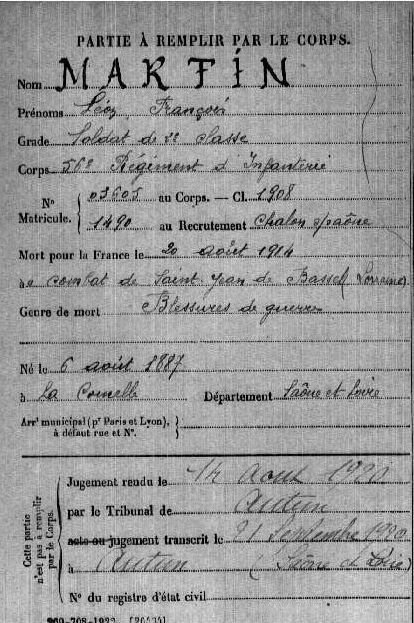 PARTIE À REMPLIR PAR LE CORPS.
Nom MARTIN
Prénoms Léon François
Grade Soldat de 2e Classe
Corps 56e Régiment d'Infanterie
No 03505 au Corps. — Cl. 1908
Matricule. 1490 au Recrutement Chalon s/Saône
Mort pour la France le 20 août 1914
à combat de Saint Jean de Bassel (Lorraine)
Genre de mort Blessures de guerre
Né le 6 août 1887
à La Comelle Département Saône et Loire
Arrt municipal (pr Paris et Lyon),
à défaut rue et No.
Cette partie
n'est pas à remplir
par le Corps.
Jugement rendu le août 1920
par le Tribunal de Autun
acte ou jugement transcrit le 21 Septembre 1920
à Autun (Saône et Loire)
No du registre d'état civil